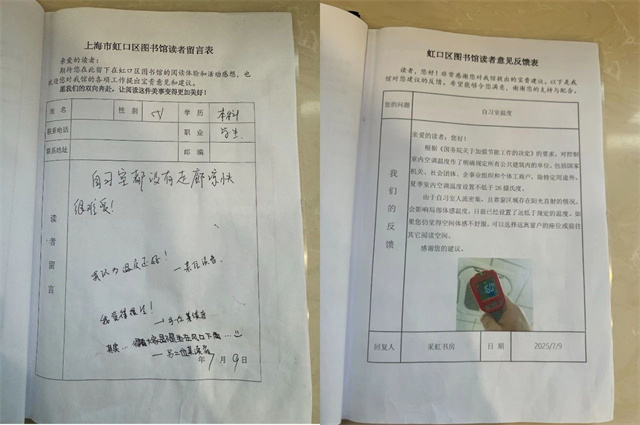 上海市虹口区图书馆读者留言表
亲爱的读者:
期待您在此留下在虹口区图书馆的阅读体验和活动感想,也
欢迎您对我馆的各项工作提出宝贵意见和建议。
愿我们的双向奔赴,让阅读这件美事变得更加美好!
姓 名
性 别
女
学 历
本科
联系电话
职 业
学生
联系地址
邮 编
读者留言
自习室都没有走廊凉快
很难受!
我认为温度还好!
—某位读者
我觉得挺冷!
其实…
年7月9日
虹口区图书馆读者意见反馈表
读者,您好!非常感谢您对我馆提出的宝贵建议。以下是我
馆对您建议的反馈,希望能够令您满意,谢谢您的支持与配合。
您的问题
自习室温度
我们的反馈
亲爱的读者:您好!
根据《国务院关于加强节能工作的决定》的要求,对控制
室内空调温度作了明确规定所有公共建筑内的单位,包括国家
机关、社会团体、企事业组织和个体工商户,除特定用途外,
夏季室内空调温度设置不低于26摄氏度。
由于自习室人流密集,且靠窗区域存在阳光直射的情况,
会影响局部体感温度,目前已经设置了远低于规定的温度。如
果您仍觉得空间体感不舒服,可以选择远离窗户的座位或前往
其它阅读空间。
感谢您的建议。
回复人
采虹书房
日 期
2025/7/9